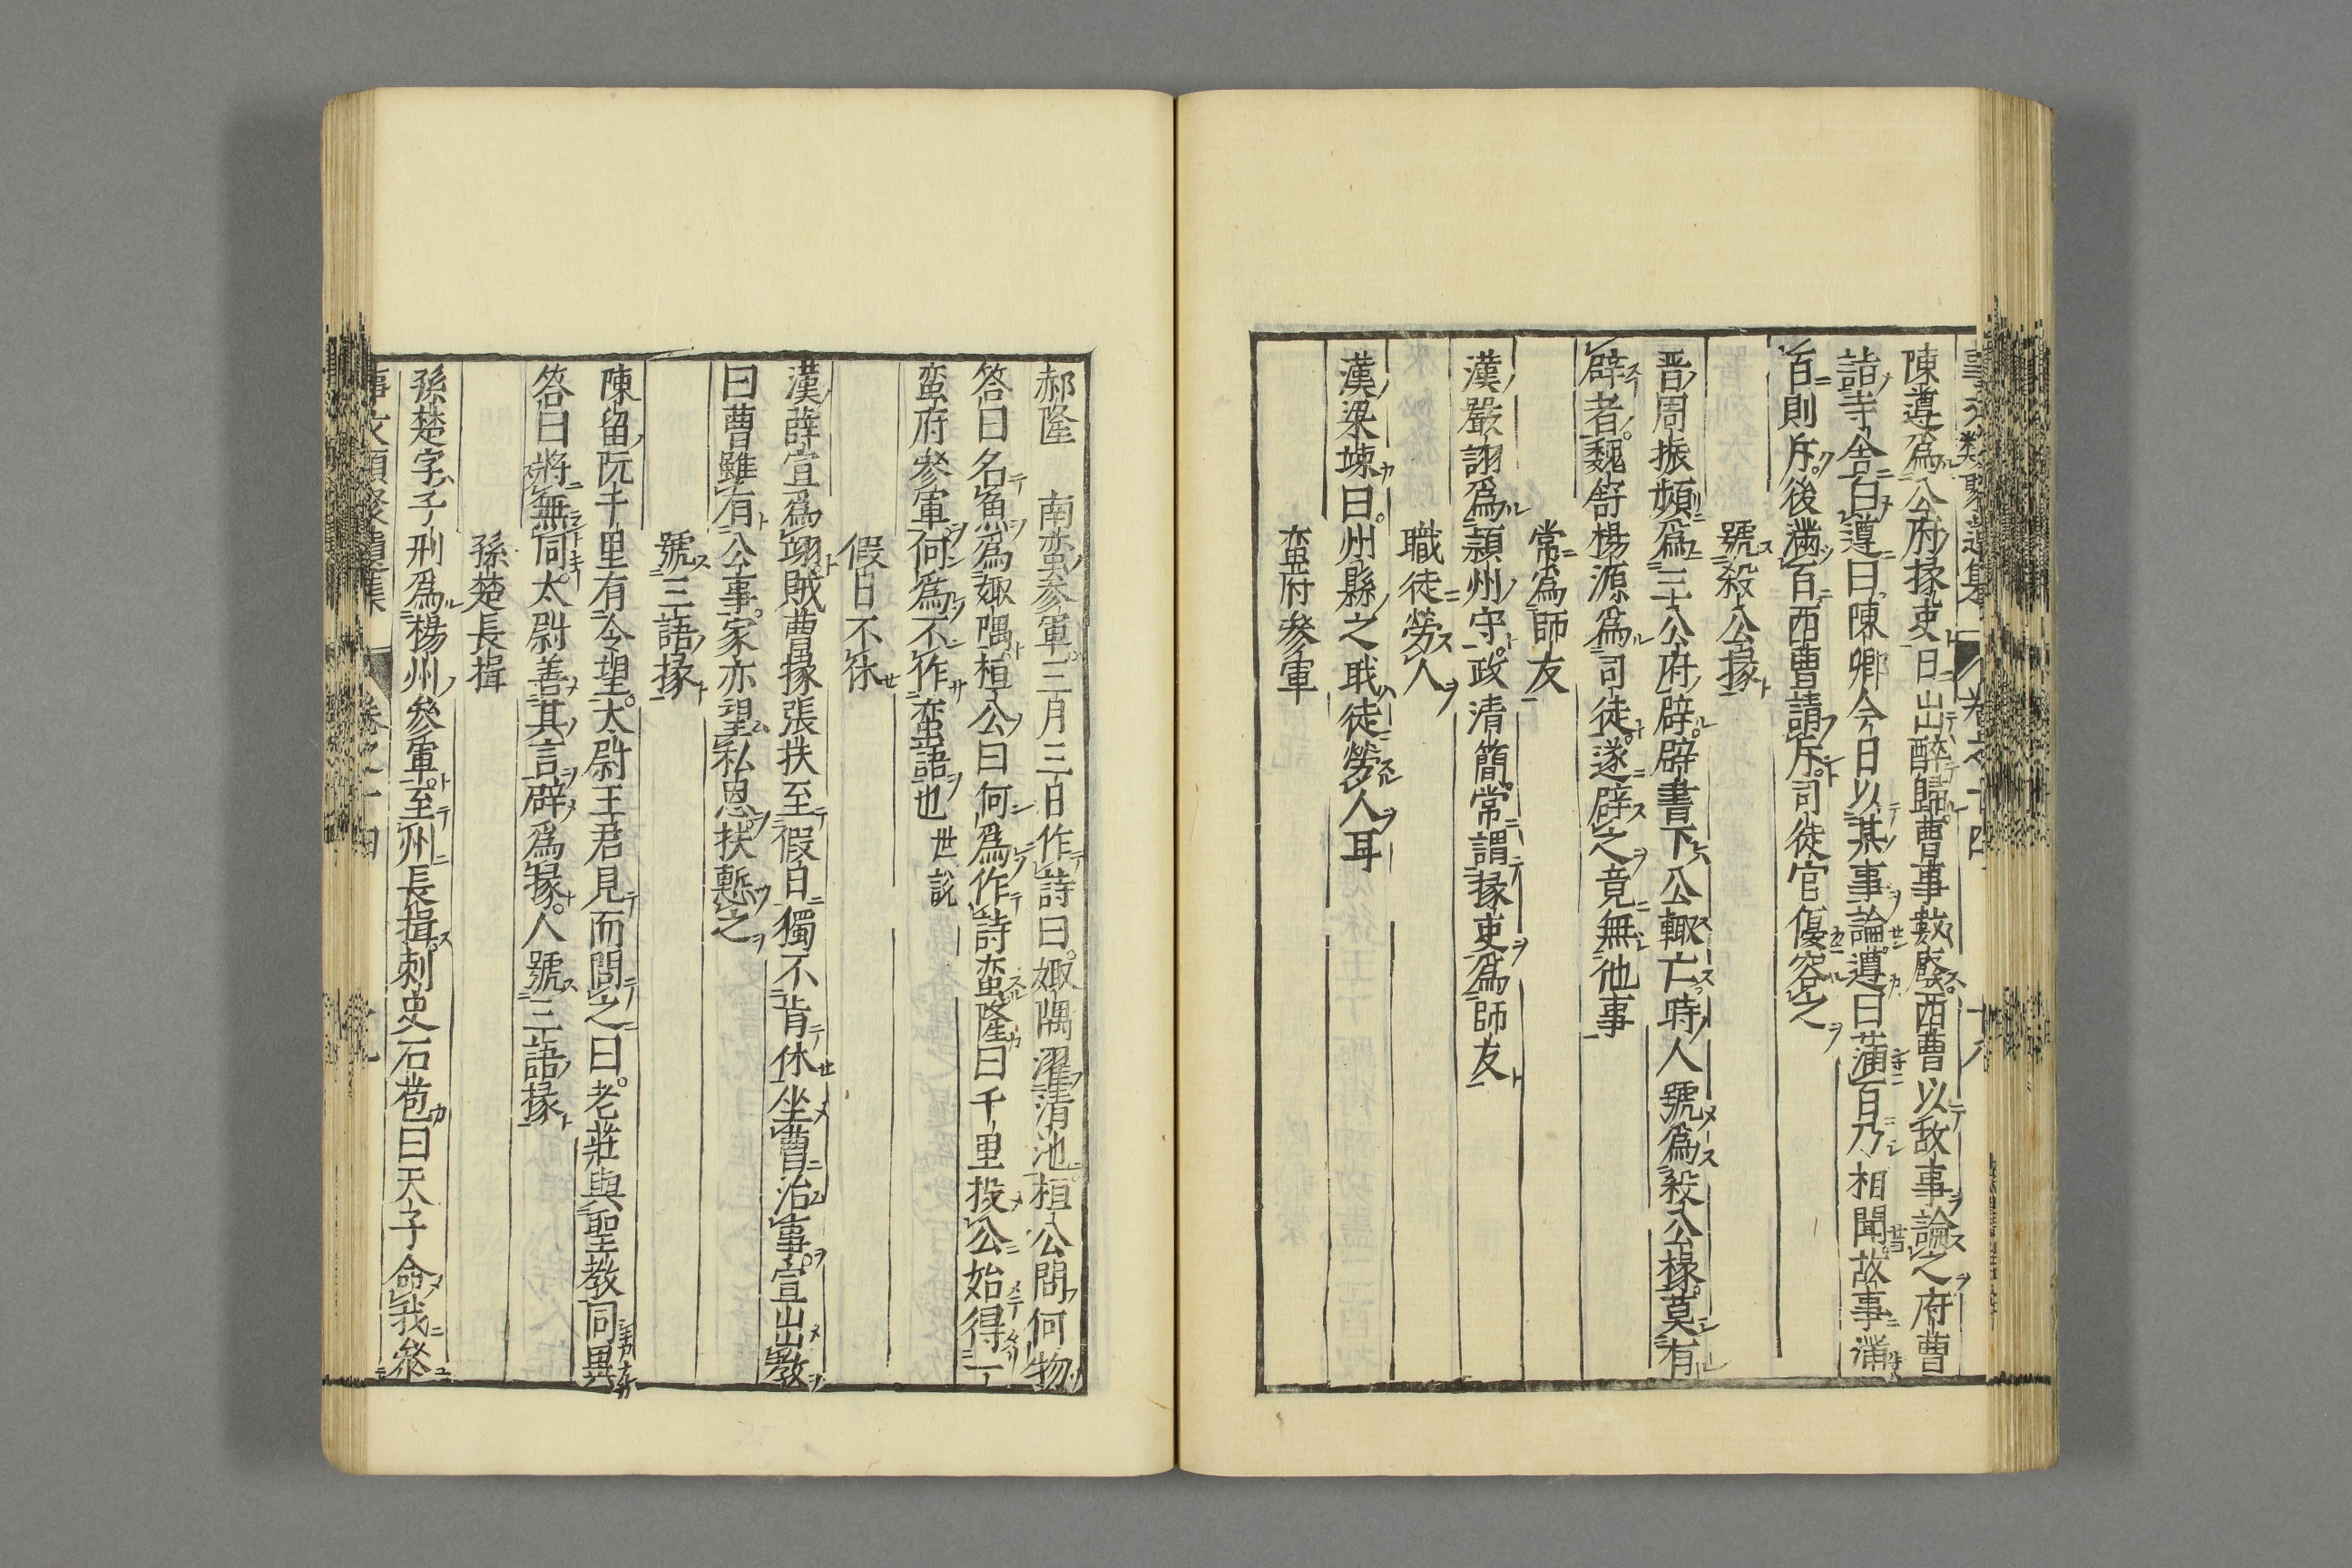 陳遵爲公府掾吏日出醉歸曹事數廢西曹以故事論之府曹
詣寺舍白遵曰陳卿今日以某事論遵曰滿百乃相聞故事滿
百則斥後滿百西曹請斥司徒官優容之
號殺公掾
晋周振頻爲三公府辟辟書下公輙亡時人號爲殺公椽莫有
辟者魏舒楊源爲司徒遂辟之竟無他事
常爲師友
漢嚴詡爲潁州守政清簡常謂掾吏爲師友
職徒勞人
漢梁竦曰州縣之職徒勞人耳
蛮府參軍
郝隆 南蛮參軍三月三日作詩曰娵隅濯清池桓公問何物
答曰名魚爲娵隅桓公曰何爲作詩蛮隆曰千里投公始得一
蛮府參軍何爲不作蛮語也 世說
假日不休
漢薛宣爲翊賊曹掾張扶至假日獨不肯休坐曹治事宣出教
曰曹雖有公事家亦望私恩扶慙之
號三語掾
陳留阮千里有令望太尉王君見而問之曰老莊與聖教同異
答曰將無同太尉善其言辟爲掾人號三語掾
孫楚長揖
孫楚字子刑爲楊州參軍至州長揖刺史石苞曰天子命我參